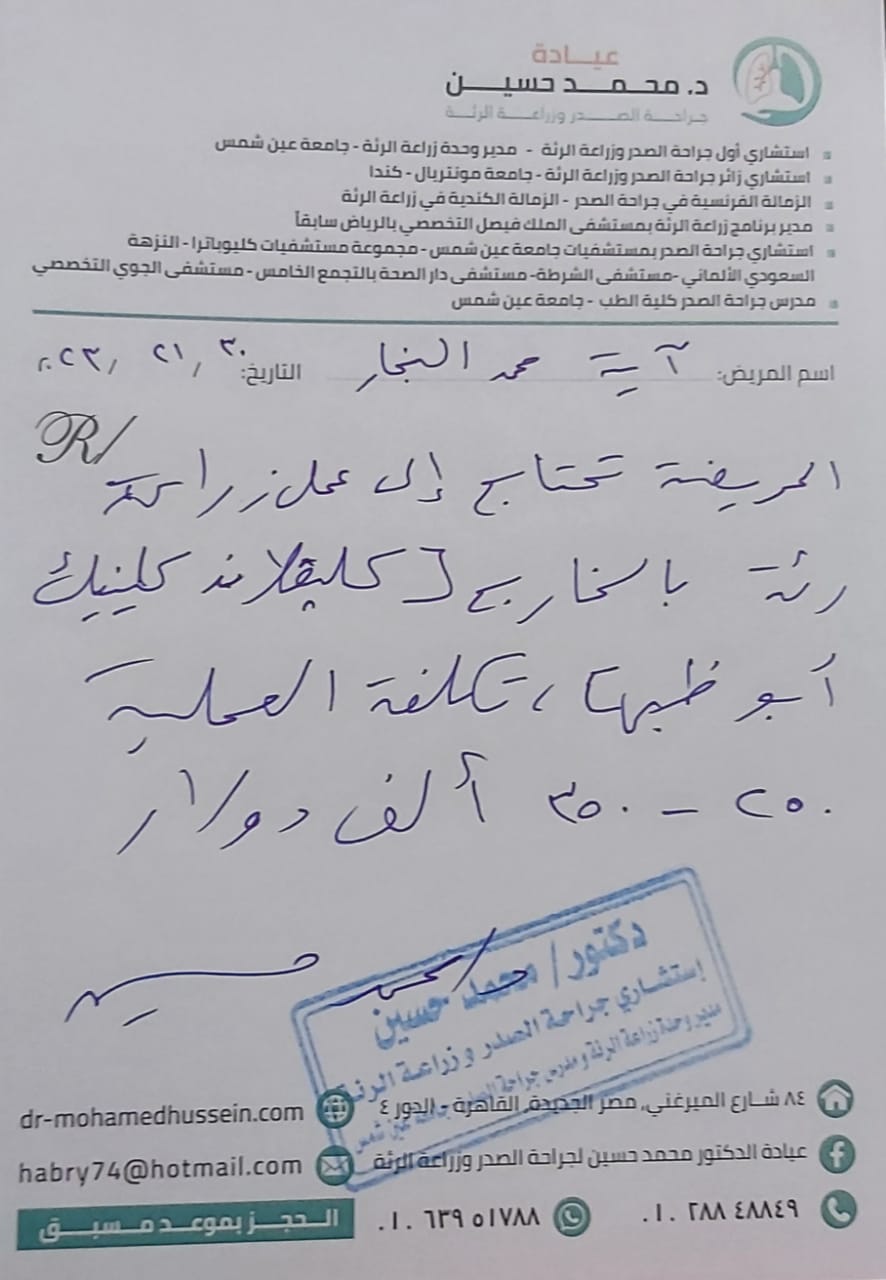 عيادة
د. محمد حسين
جراحة الصدر وزراعة الرئة
استشاري أول جراحة الصدر وزراعة الرئة - مدير وحدة زراعة الرئة - جامعة عين شمس
استشاري زائر جراحة الصدر وزراعة الرئة - جامعة مونتريال - كندا
الزمالة الفرنسية في جراحة الصدر - الزمالة الكندية في زراعة الرئة
مدير برنامج زراعة الرئة بمستشفى الملك فيصل التخصصي بالرياض سابقاً
استشاري جراحة الصدر بمستشفيات جامعة عين شمس - مجموعة مستشفيات كليوباترا - النزهة
السعودي الألماني - مستشفى الشرطة - مستشفى دار الصحة بالتجمع الخامس - مستشفى الجوي التخصصي
مدرس جراحة الصدر كلية الطب - جامعة عين شمس
اسم المريض: آية محمد النجار التاريخ: ٣٠ / ٢١ / ٢٠٢٣
R/
المريضة تحتاج إلى عمل زراعة
رئة بالخارج [كليڤلاند كلينيك
أبو ظبي]، تكلفة العملية
٢٥٠ – ٣٥٠ ألف دولار
محمد حسين
دكتور / محمد حسين
إستشاري جراحة الصدر وزراعة الرئة
مدير وحدة زراعة الرئة ومدرس جراحة الصدر
عين شمس
٨٤ شارع الميرغني, مصر الجديدة, القاهرة - الدور ٤
dr-mohamedhussein.com
عيادة الدكتور محمد حسين لجراحة الصدر وزراعة الرئة
habry74@hotmail.com
٠١٠ ٢٨٨ ٤٨٨٤٩
٠١٠ ٦٣٩ ٥١٧٨٨
الحجز بموعد مسبق